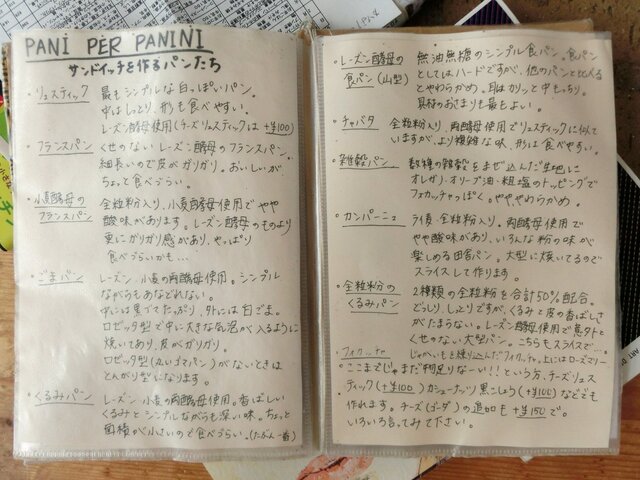 PANI PER PANINI
サンドイッチを作るパンたち
・リュスティック 最もシンプルな白っぽいパン。
中はしっとり、形も食べやすい。
レーズン酵母使用(チーズリュスティックは+¥100)
・フランスパン くせのない レーズン酵母のフランスパン。
細長いので皮がガリガリ。おいしいが、
ちょっと食べづらい。
・小麦酵母の 全粒粉入り、小麦酵母使用でやや
フランスパン 酸味があります。レーズン酵母のものより
更にガリガリ感があり、やっぱり
食べづらいかも…
・ごまパン レーズン、小麦の両酵母使用。シンプル
ながらもあなどれない。
中には黒ゴマたっぷり、外には白ごま。
ロゼッタ型で中に大きな気泡が入るように
焼いてあり、皮がガリガリ。
ロゼッタ型(丸いゴマパン)がないときは
とんがり型になります。
・くるみパン レーズン、小麦の両酵母使用。香ばしい
くるみとシンプルながらも深い味。ちょっと
面積が小さいので食べづらい。(たぶん一番)
・レーズン酵母の 無油無糖のシンプル食パン。食パン
食パン(山型) としてはハードですが、他のパンと比べる
とやわらかめ。耳はカリッと中もっちり。
具材のおさまりも最もよい。
・チャバタ 全粒粉入り、両酵母使用でリュスティックに似てい
ますが、より複雑な味、形は食べやすい。
・雑穀パン 数種の雑穀をまぜ込んだ生地に
オレガノ・オリーブ油・粗塩のトッピングで
フォカッチャっぽく。ややややわらかめ。
・カンパーニュ ライ麦・全粒粉入り。両酵母使用で
やや酸味があり、いろんな粉の味が
楽しめる田舎パン。大型に焼いてるので
スライスして作ります。
・全粒粉の 2種類の全粒粉を合計50%配合。
くるみパン どっしり、しっとりですが、くるみと皮の香ばしさ
がたまらない。レーズン酵母使用で意外と
くせのない大型パン。こちらもスライスで…。
・フォカッチャ じゃがいもを練り込んだフォカッチャ。上にはローズマリー
ここまでじゃまだ物足りなーい!!という方、チーズリュス
ティック(+¥100)カシューナッツ黒こしょう(+¥100)などでも
作れます。チーズ(ゴーダ)の追加も +¥150で。
いろいろ言ってみて下さい。